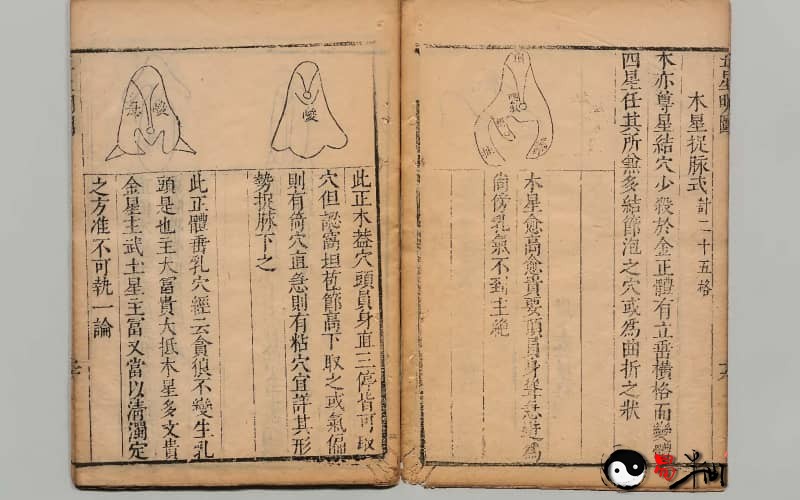 木星捉脉式 計二十五格
木亦尊星結穴少殺於金正體有立垂橫格而變
四星任其所兼多結節泡之穴或為曲折之狀
木星愈高愈貴要頂員身聳急為
尚傍乳氣不到主絕
峻
此正木葢穴頭員身直三停皆可取
穴但認窩坦苞節高下取之或氣偏
則有倚穴直急則有粘穴宜詳其形
勢捉脉下之
峻
此正體垂乳穴經云貪狼不變生乳
頭是也主大富貴大抵木星多文貴
金星主武土星主富又當以清濁定
之方准不可執一論